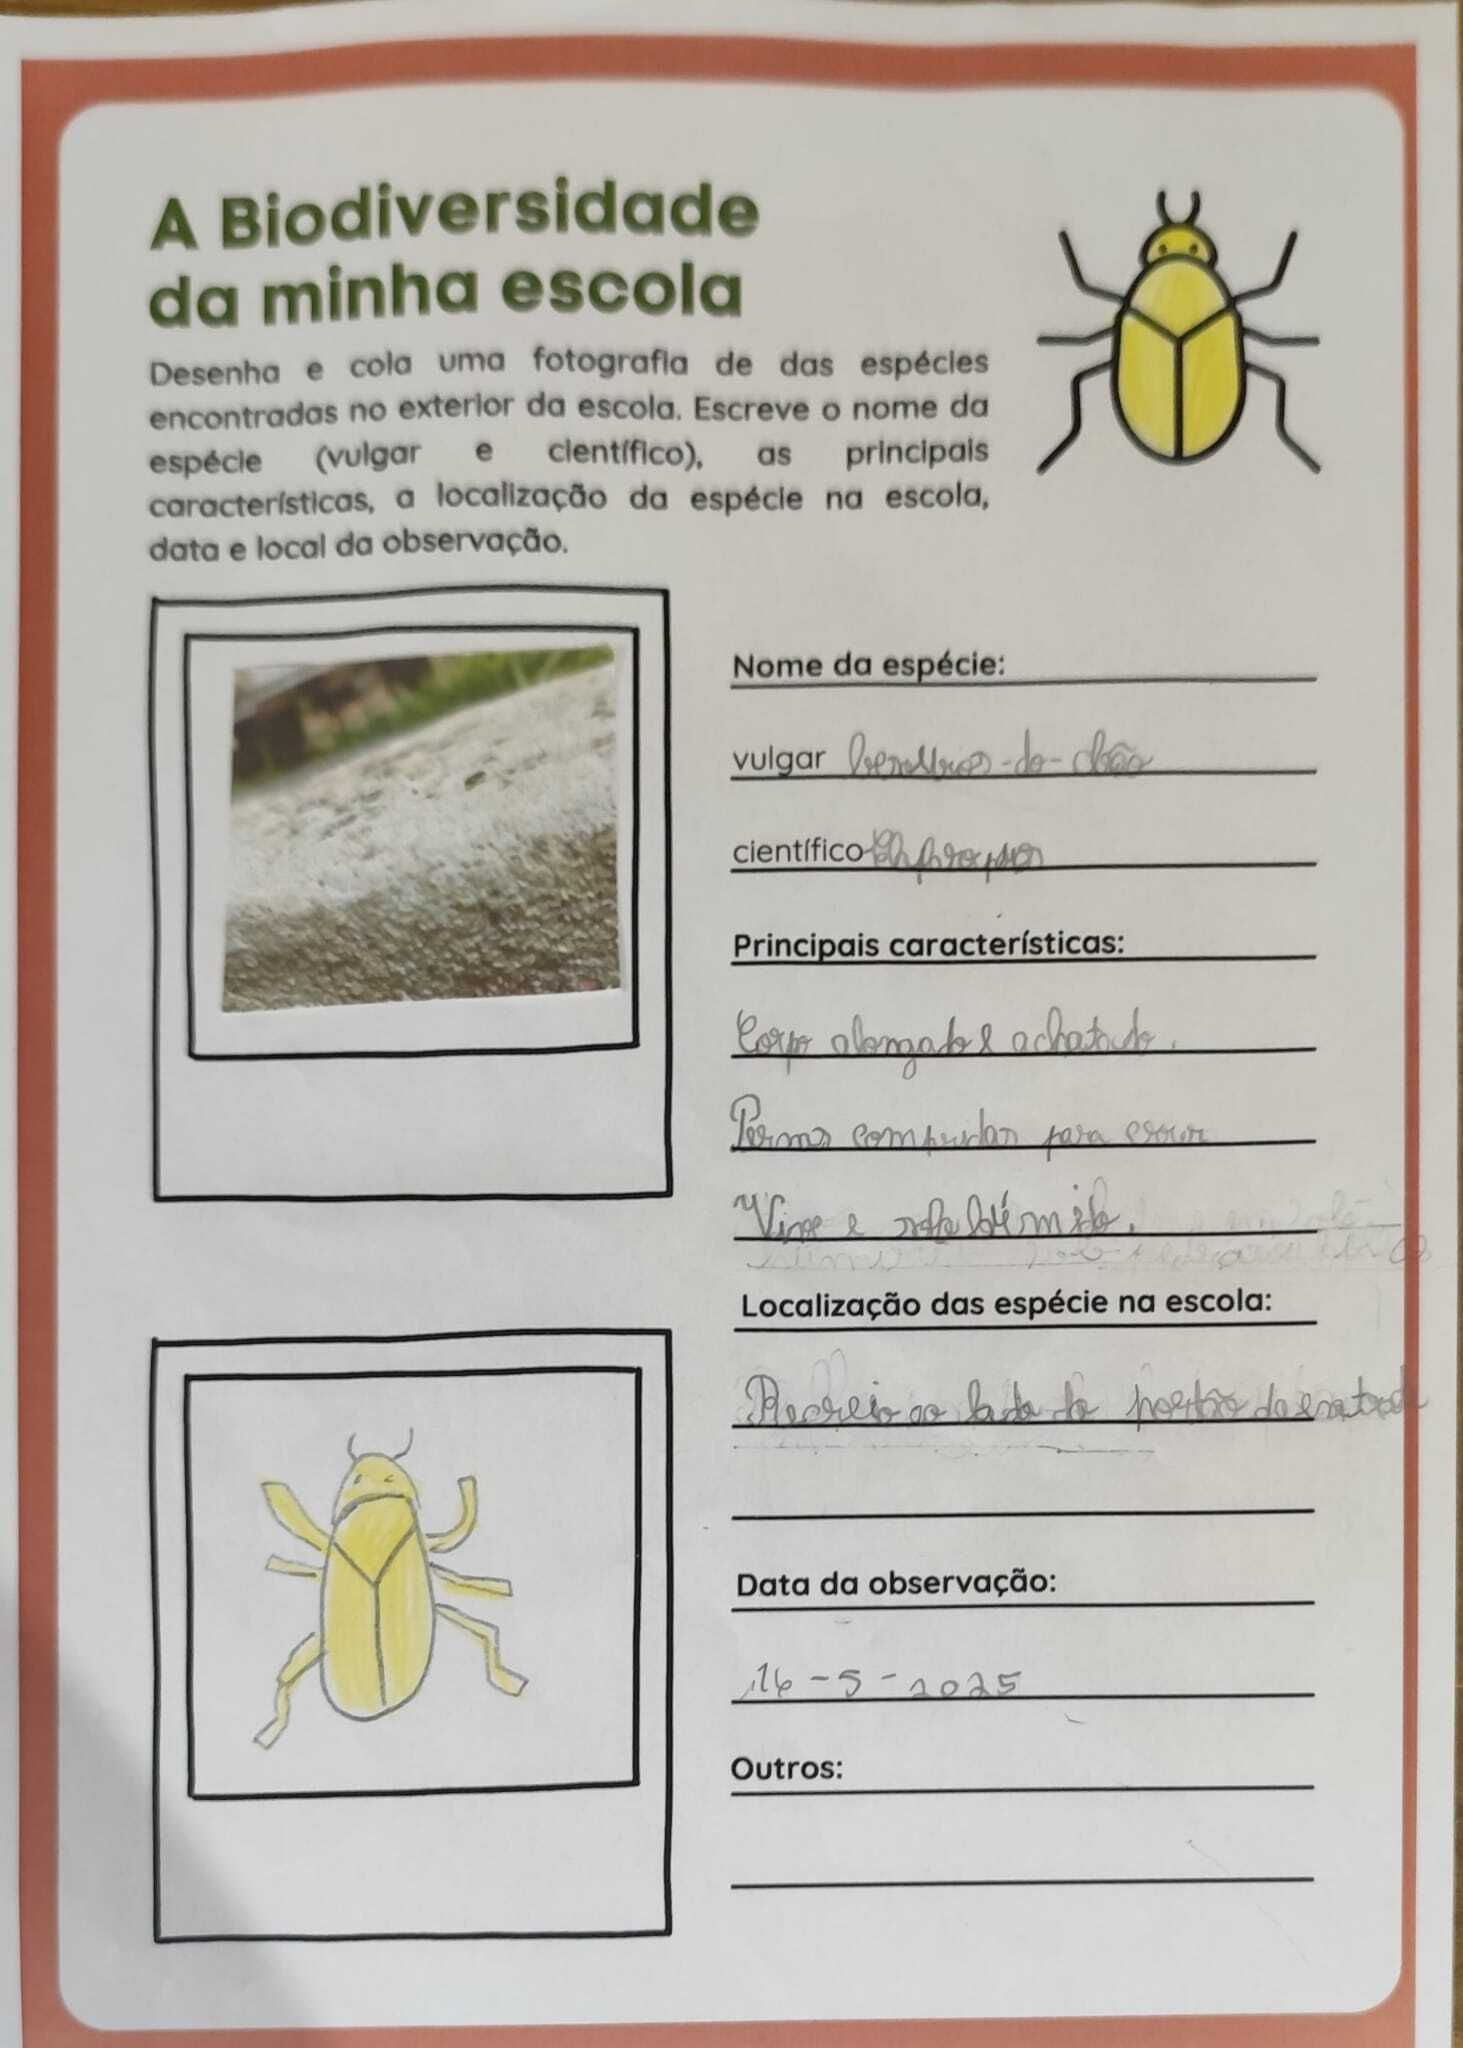 A Biodiversidade
da minha escola
Desenha e cola uma fotografia de das espécies
encontradas no exterior da escola. Escreve o nome da
espécie (vulgar e científico), as principais
características, a localização da espécie na escola,
data e local da observação.
Nome da espécie:
vulgar -do-chão
científico
Principais características:
Corpo alongado e achatado.
Pernas compridas para
Vive e
Localização das espécie na escola:
Recreio ao lado do portão da entrada
Data da observação:
16-5-2025
Outros: